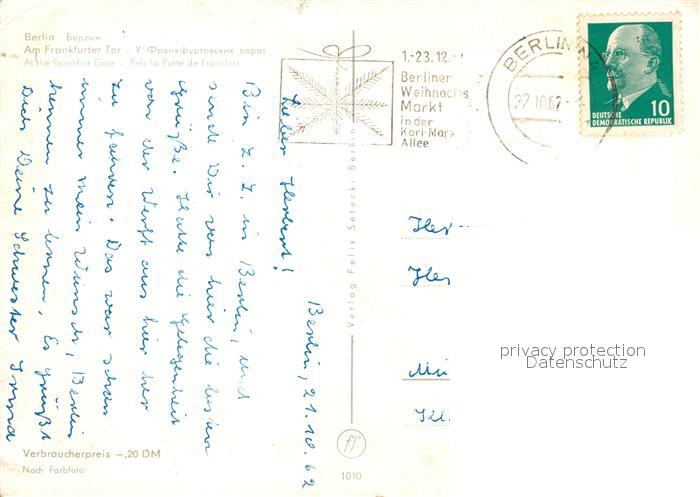 Berlin Берлин
Am Frankfurter Tor - У Франкфуртовских ворот
At the Frankfort Gate - Près la Porte de Francfort
1.-23.12.
Berliner
Weihnachts
Markt
in der
Karl-Marx
Allee
BERLIN
22.10.62
10
DEUTSCHE
DEMOKRATISCHE REPUBLIK
Berlin, 21.10.62
Lieber Herbert!
Bin z. Z. in Berlin, und
sende Dir von hier die besten
Grüße. Hatte die Gelegenheit
von der Werft aus hier her
zu fahren. Das war schon
immer mein Wunsch, Berlin
kennen zu lernen. Es grüßt
Dich Deine Schwester Irma
Verlag Felix Setecki Berlin
Her
Her
privacy protection
Datenschutz
Verbraucherpreis -,20 DM
Nach Farbfoto
ff
1010